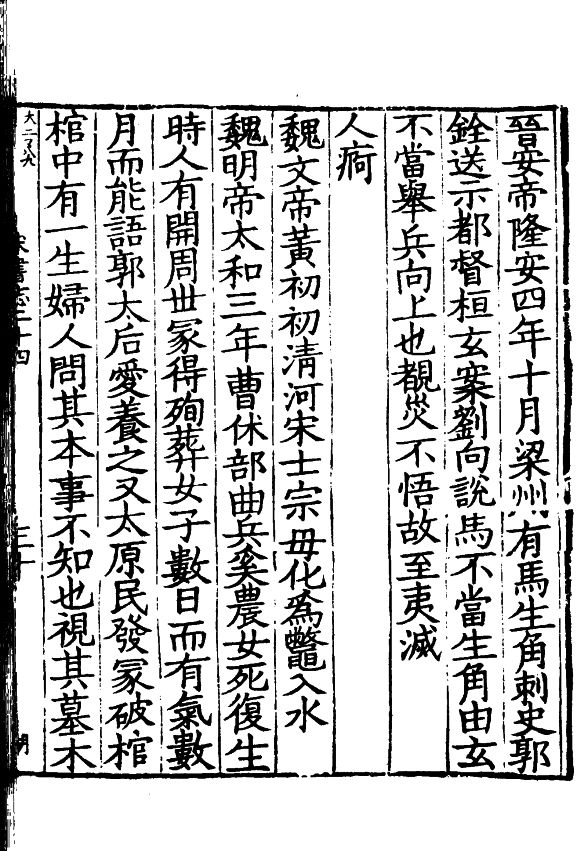 晉安帝隆安四年十月梁州有馬生角刺史郭
銓送示都督桓玄案劉向說馬不當生角由玄
不當舉兵向上也覩災不悟故至夷滅
人痾
魏文帝黃初初清河宋士宗母化爲鼈入水
魏明帝太和三年曹休部曲兵奚農女死復生
時人有開周世冢得殉葬女子數日而有氣數
月而能語郭太后愛養之又太原民發冢破棺
棺中有一生婦人問其本事不知也視其墓木
宋書志二十四